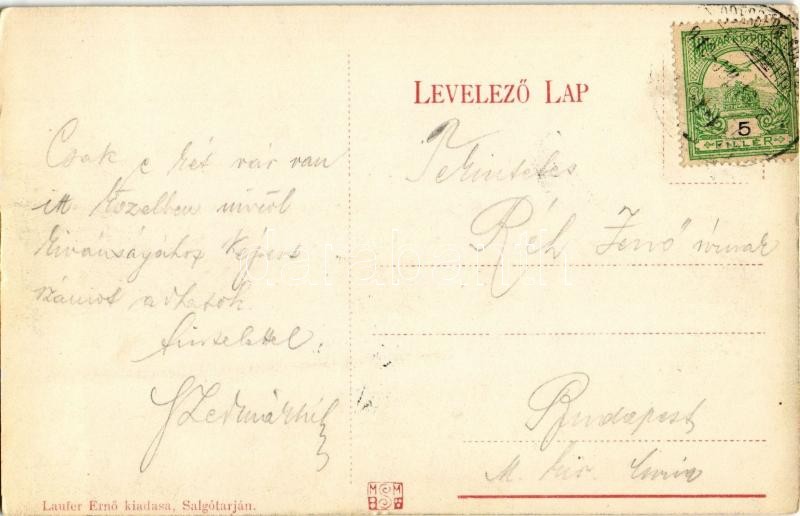 LEVELEZŐ LAP
MAGYAR KIR. POSTA
5
FILLÉR
Csak e két vár van
itt közelben miről
kivánságához képest
számot adhatok.
tisztelettel:
Tekintetes
Réh Jenő úrnak
Budapest
M. kir.
Laufer Ernő kiadasa, Salgótarján.
darabanth